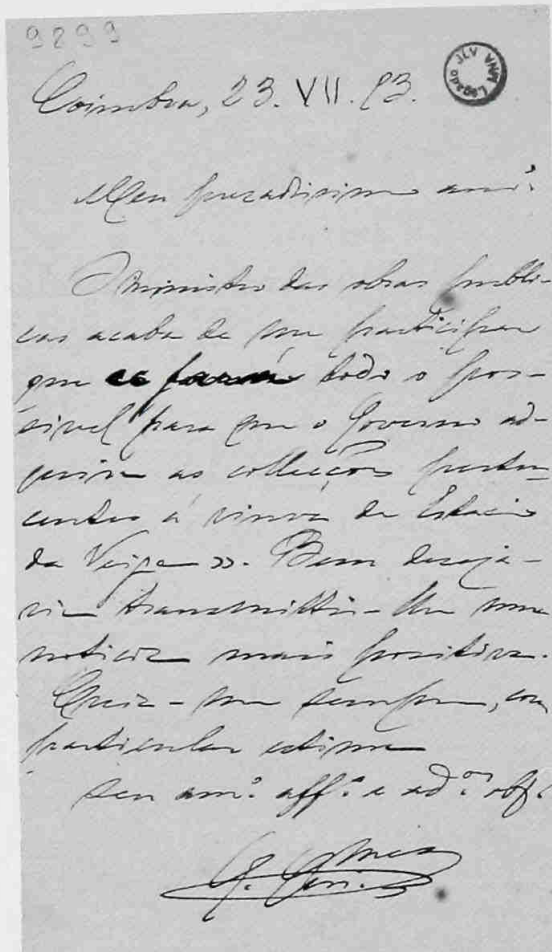 9899
Legado JLV MNA
Coimbra, 23. VII. 93.
Meu presadissimo am.º
O ministro das obras publi-
cas acaba de me participar
que « fará todo o pos-
sivel para que o Governo ad-
quira as collecções perten-
centes á viuva de Estacio
da Veiga ». Bem deseja-
ria transmittir-lhe uma
noticia mais positiva.
Creia-me sempre, com
particular estima
seu am.º aff.º e ad.ºʳ obg.º